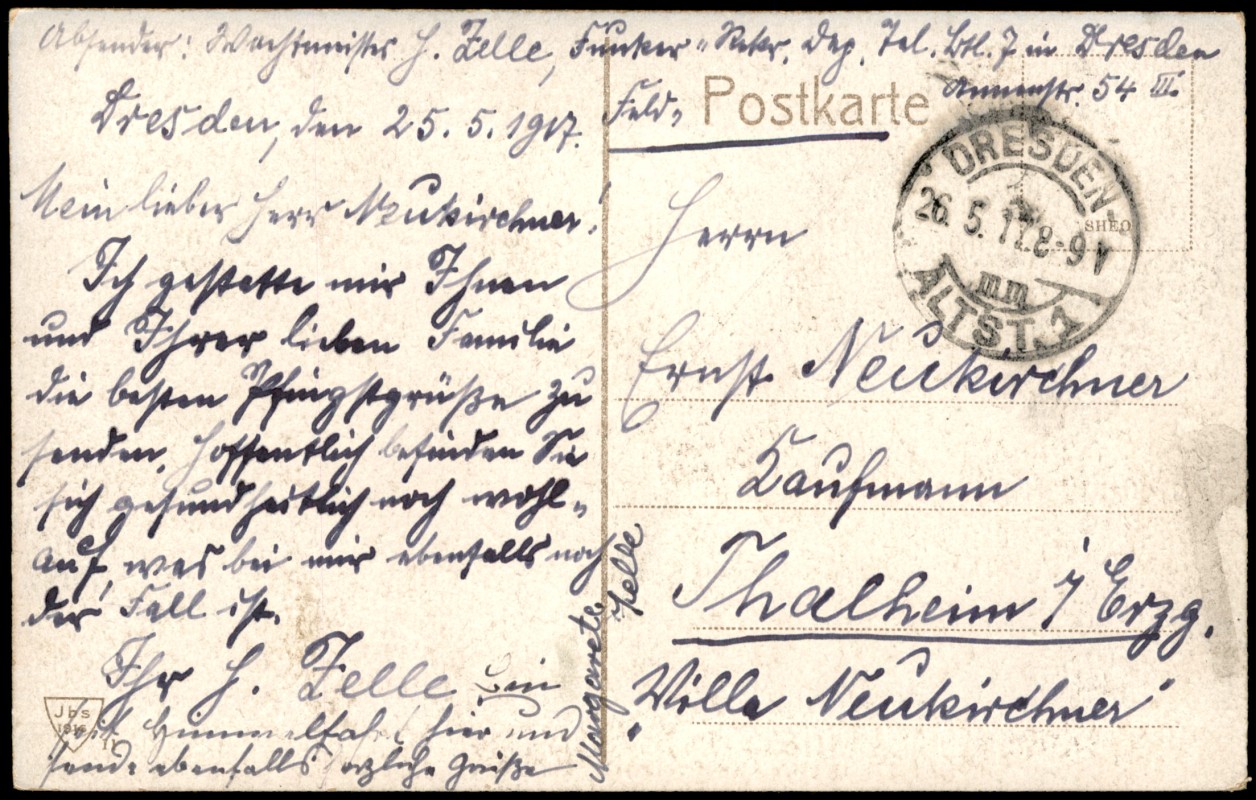 Absender: Wachtmeister H. Zelle, Funker-Rekr. Dep. Tel. Btl. 7 in Dresden
Annenstr. 54 III.
Dresden, den 25. 5. 1917.
Feld-
Postkarte
Mein lieber Herr Neukirchner!
Ich gestatte mir Ihnen
und Ihrer lieben Familie
die besten Pfingstgrüße zu
senden. Hoffentlich befinden Sie
sich gesundheitlich noch wohl-
auf, was bei mir ebenfalls noch
der Fall ist.
Ihr H. Zelle
Bin
seit Himmelfahrt hier und
sende ebenfalls herzliche Grüße
Margarete
Zelle
Jbs
1916
DRESDEN
26. 5. 17. 8-9 V
ALTST. 1
Herrn
Ernst Neukirchner
Kaufmann
Thalheim i/Erzg.
"Villa Neukirchner"